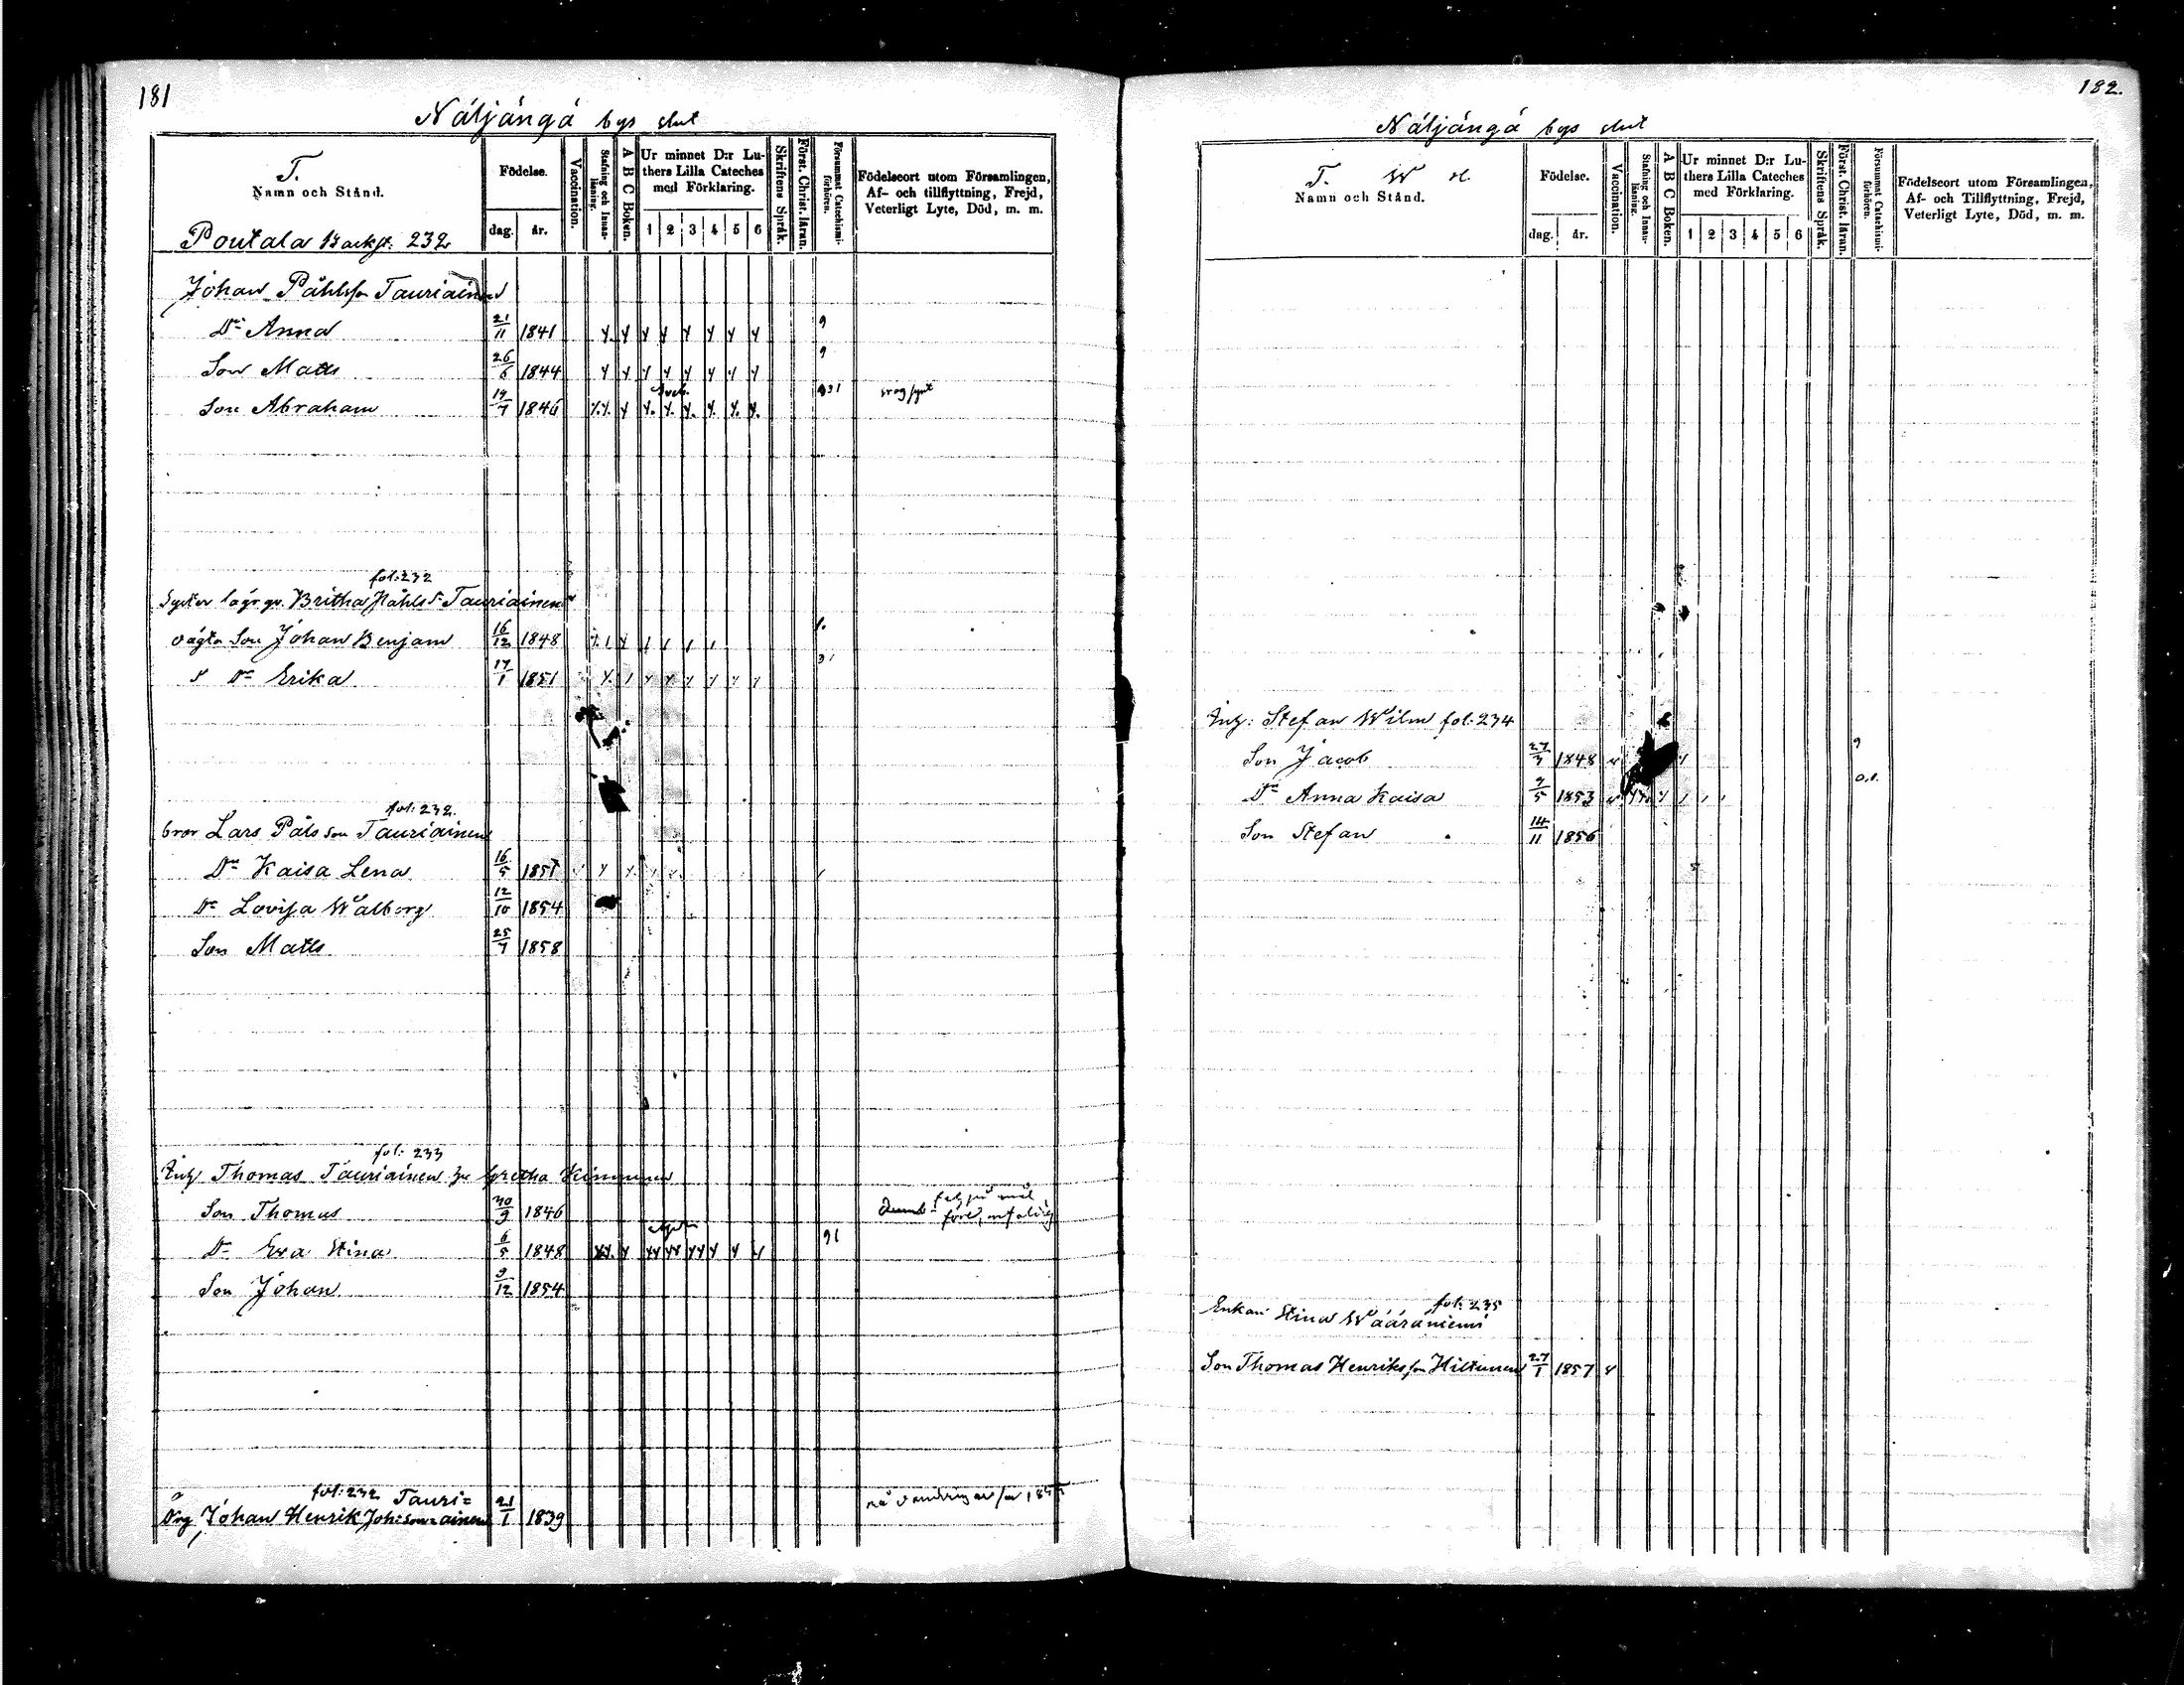 181
Näljängä bys slut
T.
Namn och Stånd.
Födelse.
dag. år.
Vaccination.
Stafning och Innanläsning.
A B C Boken.
Ur minnet D:r Lu-
thers Lilla Cateches
med Förklaring.
1 2 3 4 5 6
Skriftens Språk.
Först. Christ. läran.
Försummat Catechismi-
förhören.
Födelseort utom Församlingen,
Af- och tillflyttning, Frejd,
Veterligt Lyte, Död, m. m.
Poutala Backst. 232
Johan Påhlsson Tauriainen
Dr Anna 21/11 1841 9
Son Matts 26/6 1844 9
Son Abraham 19/7 1846
fol: 232
Syster Britha Påhls Dr Tauriainen
oägta Son Johan Benjam 16/12 1848
Dr Erika 17/1 1851
fol: 232.
bror Lars Påls son Tauriainen
Dr Kaisa Lena 16/5 1851
Dr Lovisa Walborg 12/10 1854
Son Matts 25/7 1858
fol: 233
Inh Thomas Tauriainen Gretha Kinnunen
Son Thomas 30/9 1846 Dumb
Dr Eva Stina 6/5 1848 91
Son Johan 9/12 1854
fol: 232 Tauri=
Drg Johan Henrik Joh:son ainen 21/1 1839
182.
Näljängä bys slut
T. W
Namn och Stånd.
Födelse.
dag. år.
Vaccination.
Stafning och Innanläsning.
A B C Boken.
Ur minnet D:r Lu-
thers Lilla Cateches
med Förklaring.
1 2 3 4 5 6
Skriftens Språk.
Först. Christ. läran.
Försummat Catechismi-
förhören.
Födelseort utom Församlingen,
Af- och Tillflyttning, Frejd,
Veterligt Lyte, Död, m. m.
Inh: Stefan Wilm fol. 234
Son Jacob 27/3 1848 9
Dr Anna Kaisa 9/5 1853
Son Stefan 14/11 1856
fol: 235
Enkan Stina Wääräniemi
Son Thomas Henriksson Hiltunen 27/1 1857